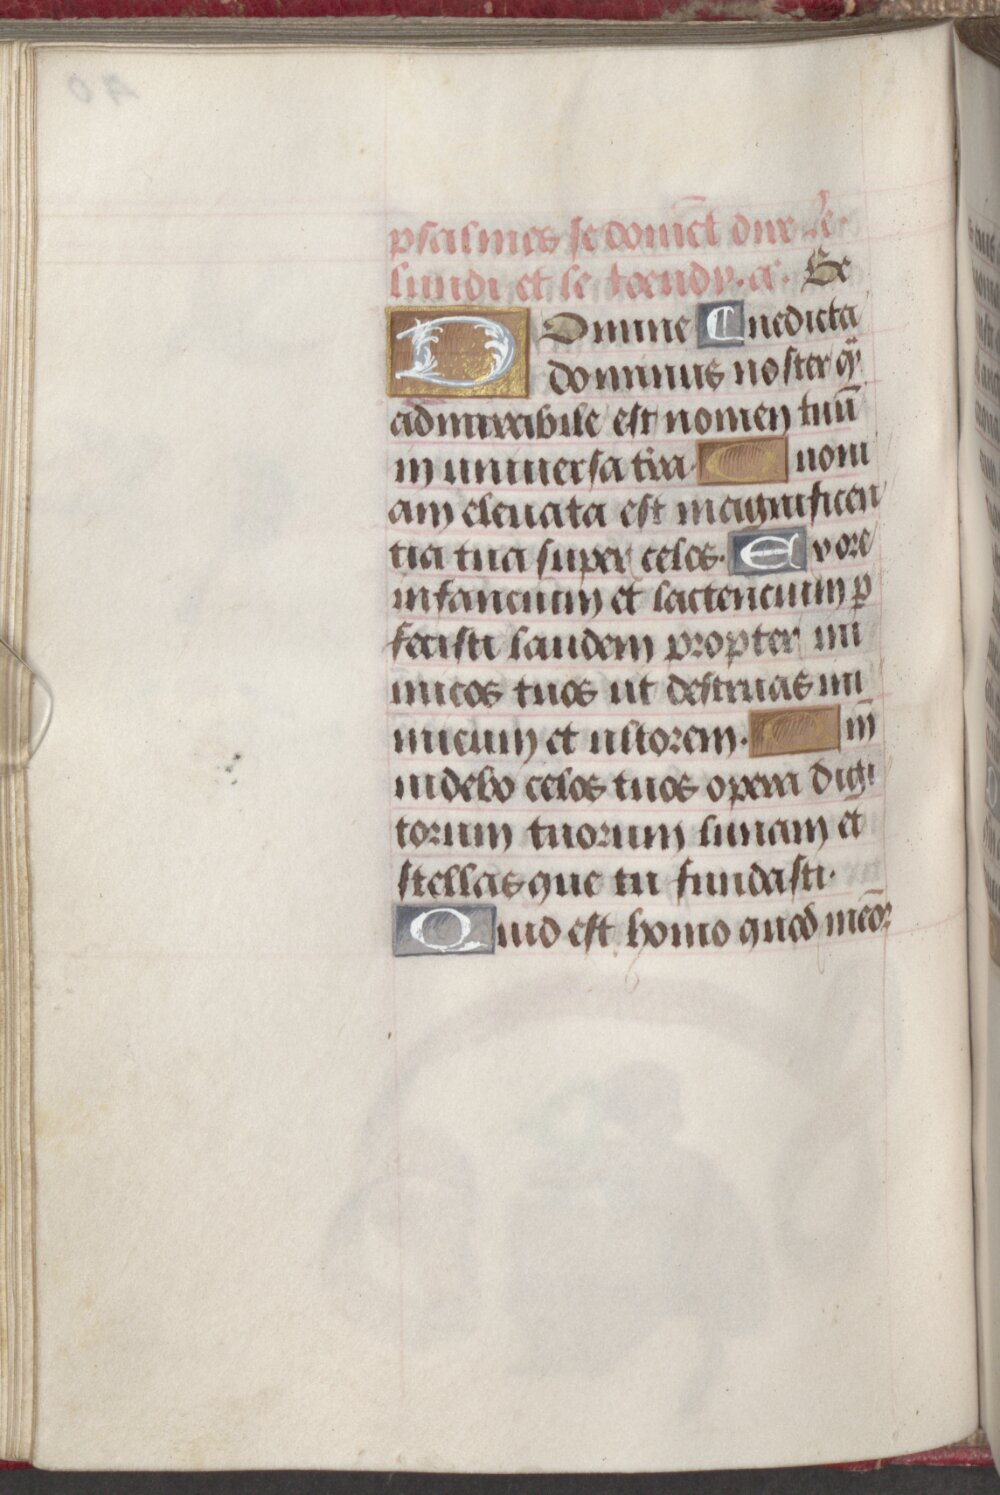 psalmes se doiuēt dire le
lundi et le ioeudy. a. Be
Domine C nedicta
dominus noster qͣ
admirabile est nomen tuū
in uniuersa t̄ra. Q uoni
am eleuata est magnificen
tia tua super celos. E x ore
infancium et lactencium ꝑ
fecisti laudem propter ini
micos tuos ut destruas ini
micum et ultorem. Q m̄
uidebo celos tuos opera digi
torum tuorum lunam et
stellas que tu fundasti.
Quid est homo quod memor